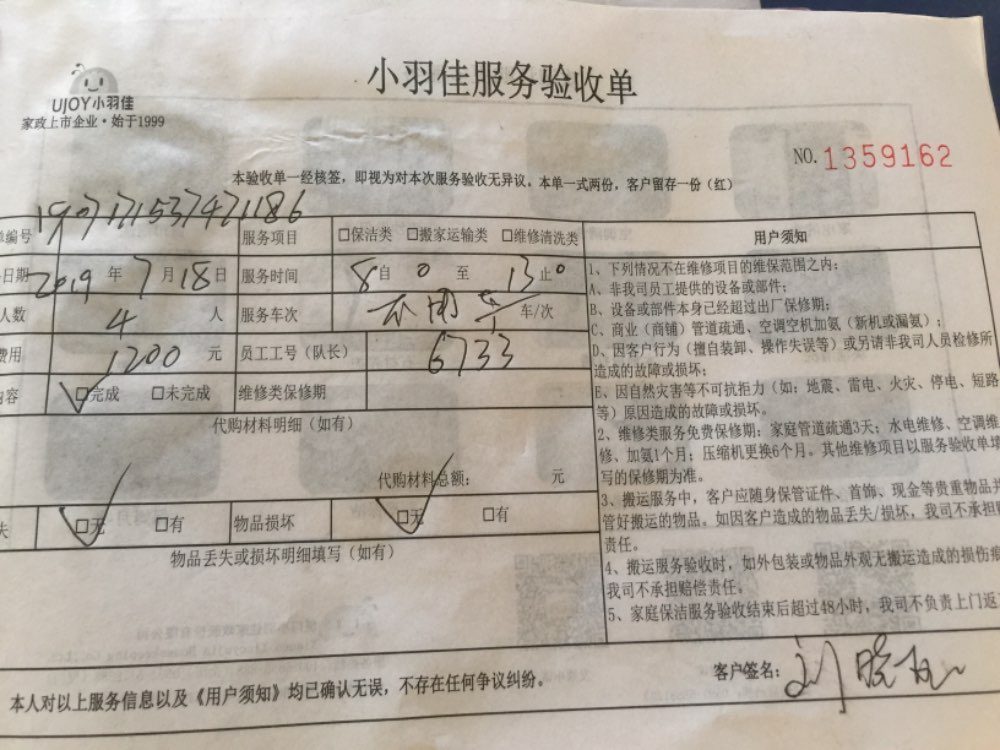 小羽佳服务验收单
UJOY小羽佳
家政上市企业·始于1999
NO.1359162
本验收单一经核签，即视为对本次服务验收无异议。本单一式两份，客户留存一份（红）
单编号 服务项目 □保洁类 □搬家运输类 □维修清洗类
日期 2019 年 7 月 18 日 服务时间 8 自 0 至 13 止 0
人数 4 人 服务车次 车/次
费用 1200 元 员工工号（队长） 6733
内容 □完成 □未完成 维修类保修期
代购材料明细（如有）
代购材料总额： 元
失 □无 □有 物品损坏 □无 □有
物品丢失或损坏明细填写（如有）
用户须知
1、下列情况不在维修项目的维保范围之内：
A、非我司员工提供的设备或部件；
B、设备或部件本身已经超过出厂保修期；
C、商业（商铺）管道疏通、空调空机加氨（新机或漏氨）；
D、因客户行为（擅自装卸、操作失误等）或另请非我司人员检修所
造成的故障或损坏；
E、因自然灾害等不可抗拒力（如：地震、雷电、火灾、停电、短路
等）原因造成的故障或损坏。
2、维修类服务免费保修期：家庭管道疏通3天；水电维修、空调维
修、加氨1个月；压缩机更换6个月。其他维修项目以服务验收单填
写的保修期为准。
3、搬运服务中，客户应随身保管证件、首饰、现金等贵重物品并
管好搬运的物品。如因客户造成的物品丢失/损坏，我司不承担赔
责任。
4、搬运服务验收时，如外包装或物品外观无搬运造成的损伤痕
我司不承担赔偿责任。
5、家庭保洁服务验收结束后超过48小时，我司不负责上门返工
本人对以上服务信息以及《用户须知》均已确认无误，不存在任何争议纠纷。
客户签名：